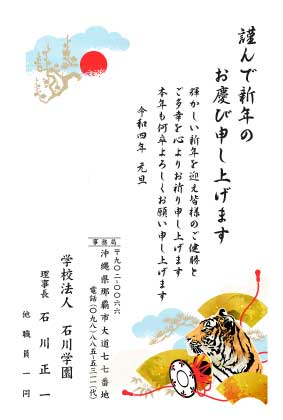 謹んで新年の
お慶び申し上げます
輝かしい新年を迎え皆様のご健勝と
ご多幸を心よりお祈り申し上げます
本年も何卒よろしくお願い申し上げます
令和四年 元旦
事務局
〒九〇二-〇〇六六
沖縄県那覇市大道七七番地
電話(〇九八)八八五-五三一一(代)
学校法人 石川学園
理事長 石川正一
他職員一同